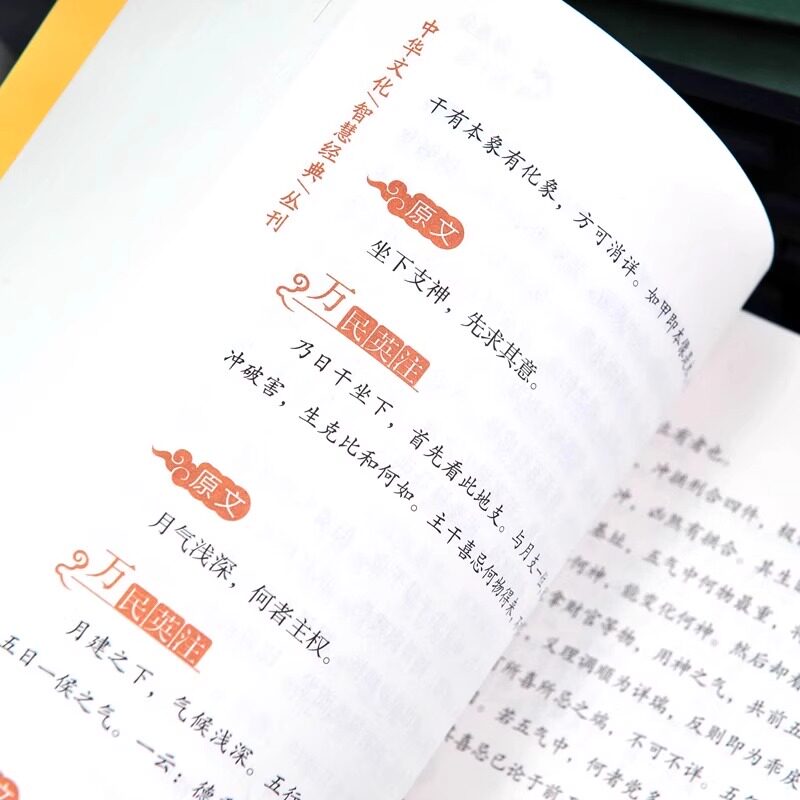 中华文化/智慧经典/丛刊
干有本象有化象，方可消详。如甲即本象
原文
坐下支神，先求其意。
万民英注
乃日干坐下，首先看此地支。与月支一
冲破害，生克比和何如。主干喜忌何物得来，
原文
月气浅深，何者主权。
万民英注
月建之下，气候浅深。五行
五日一候之气。一云：德
文
者也。
，冲损刑合四件，极
冲，凶煞有救合。其生
基址，五气中何物最重，
何神，能变化何神。然后却看
拿财官等物，用神之气，共前五
，义理调顺为详瑞，反则即为乖戾
所喜所忌之病，不可不详。五气
。若五气中，何者党多
喜忌已论于前